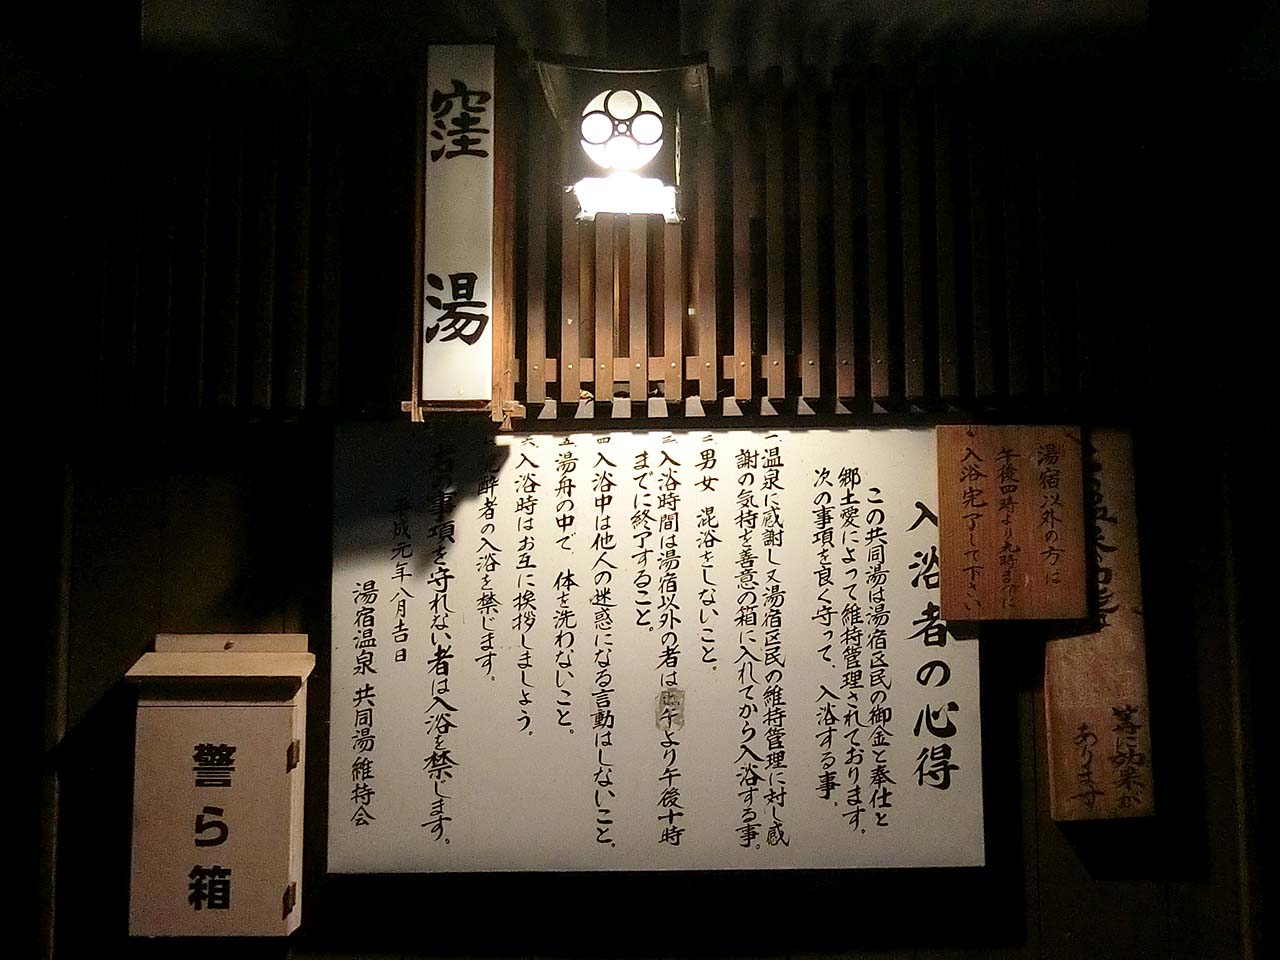 窪湯
湯宿以外の方は
午後四時より九時までに
入浴完了して下さい
等に効果が
あります
入浴者の心得
この共同湯は湯宿区民の御金と奉仕と
郷土愛によって維持管理されております。
次の事項を良く守って、入浴する事。
一、温泉に感謝し又湯宿区民の維持管理に対し感
謝の気持を善意の箱に入れてから入浴する事。
二、男女 混浴をしないこと。
三、入浴時間は湯宿以外の者は正午より午後十時
までに終了すること。
四、入浴中は他人の迷惑になる言動はしないこと。
五、湯舟の中で、体を洗わないこと。
六、入浴時はお互に挨拶しましょう。
酔者の入浴を禁じます。
右の事項を守れない者は入浴を禁じます。
平成元年八月吉日
湯宿温泉 共同湯維持会
警ら箱